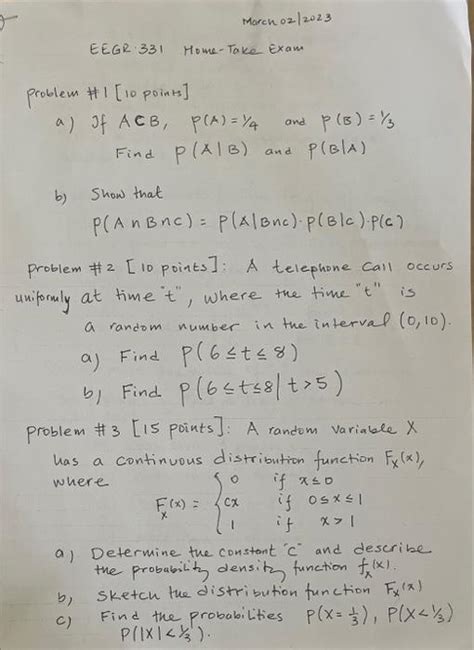 March 02/2023
EEGR 331 Home-Take Exam
Problem #1 [10 points]
a) If A⊂B, P(A) = 1/4 and P(B) = 1/3
Find P(A|B) and P(B|A)
b) Show that
P(A∩B∩C) = P(A|B∩C)·P(B|C)·P(C)
Problem #2 [10 points]: A telephone call occurs
uniformly at time "t", where the time "t" is
a random number in the interval (0,10).
a) Find P(6≤t≤8)
b) Find P(6≤t≤8|t>5)
Problem #3 [15 points]: A random variable X
has a continuous distribution function Fx(x),
where
Fx(x) = { 0 if x≤0
cx if 0≤x≤1
1 if x>1
a) Determine the constant "c" and describe
the probability density function fx(x).
b) Sketch the distribution function Fx(x)
c) Find the probabilities P(X=1/3), P(X<1/3)
P(|X|<1/3).